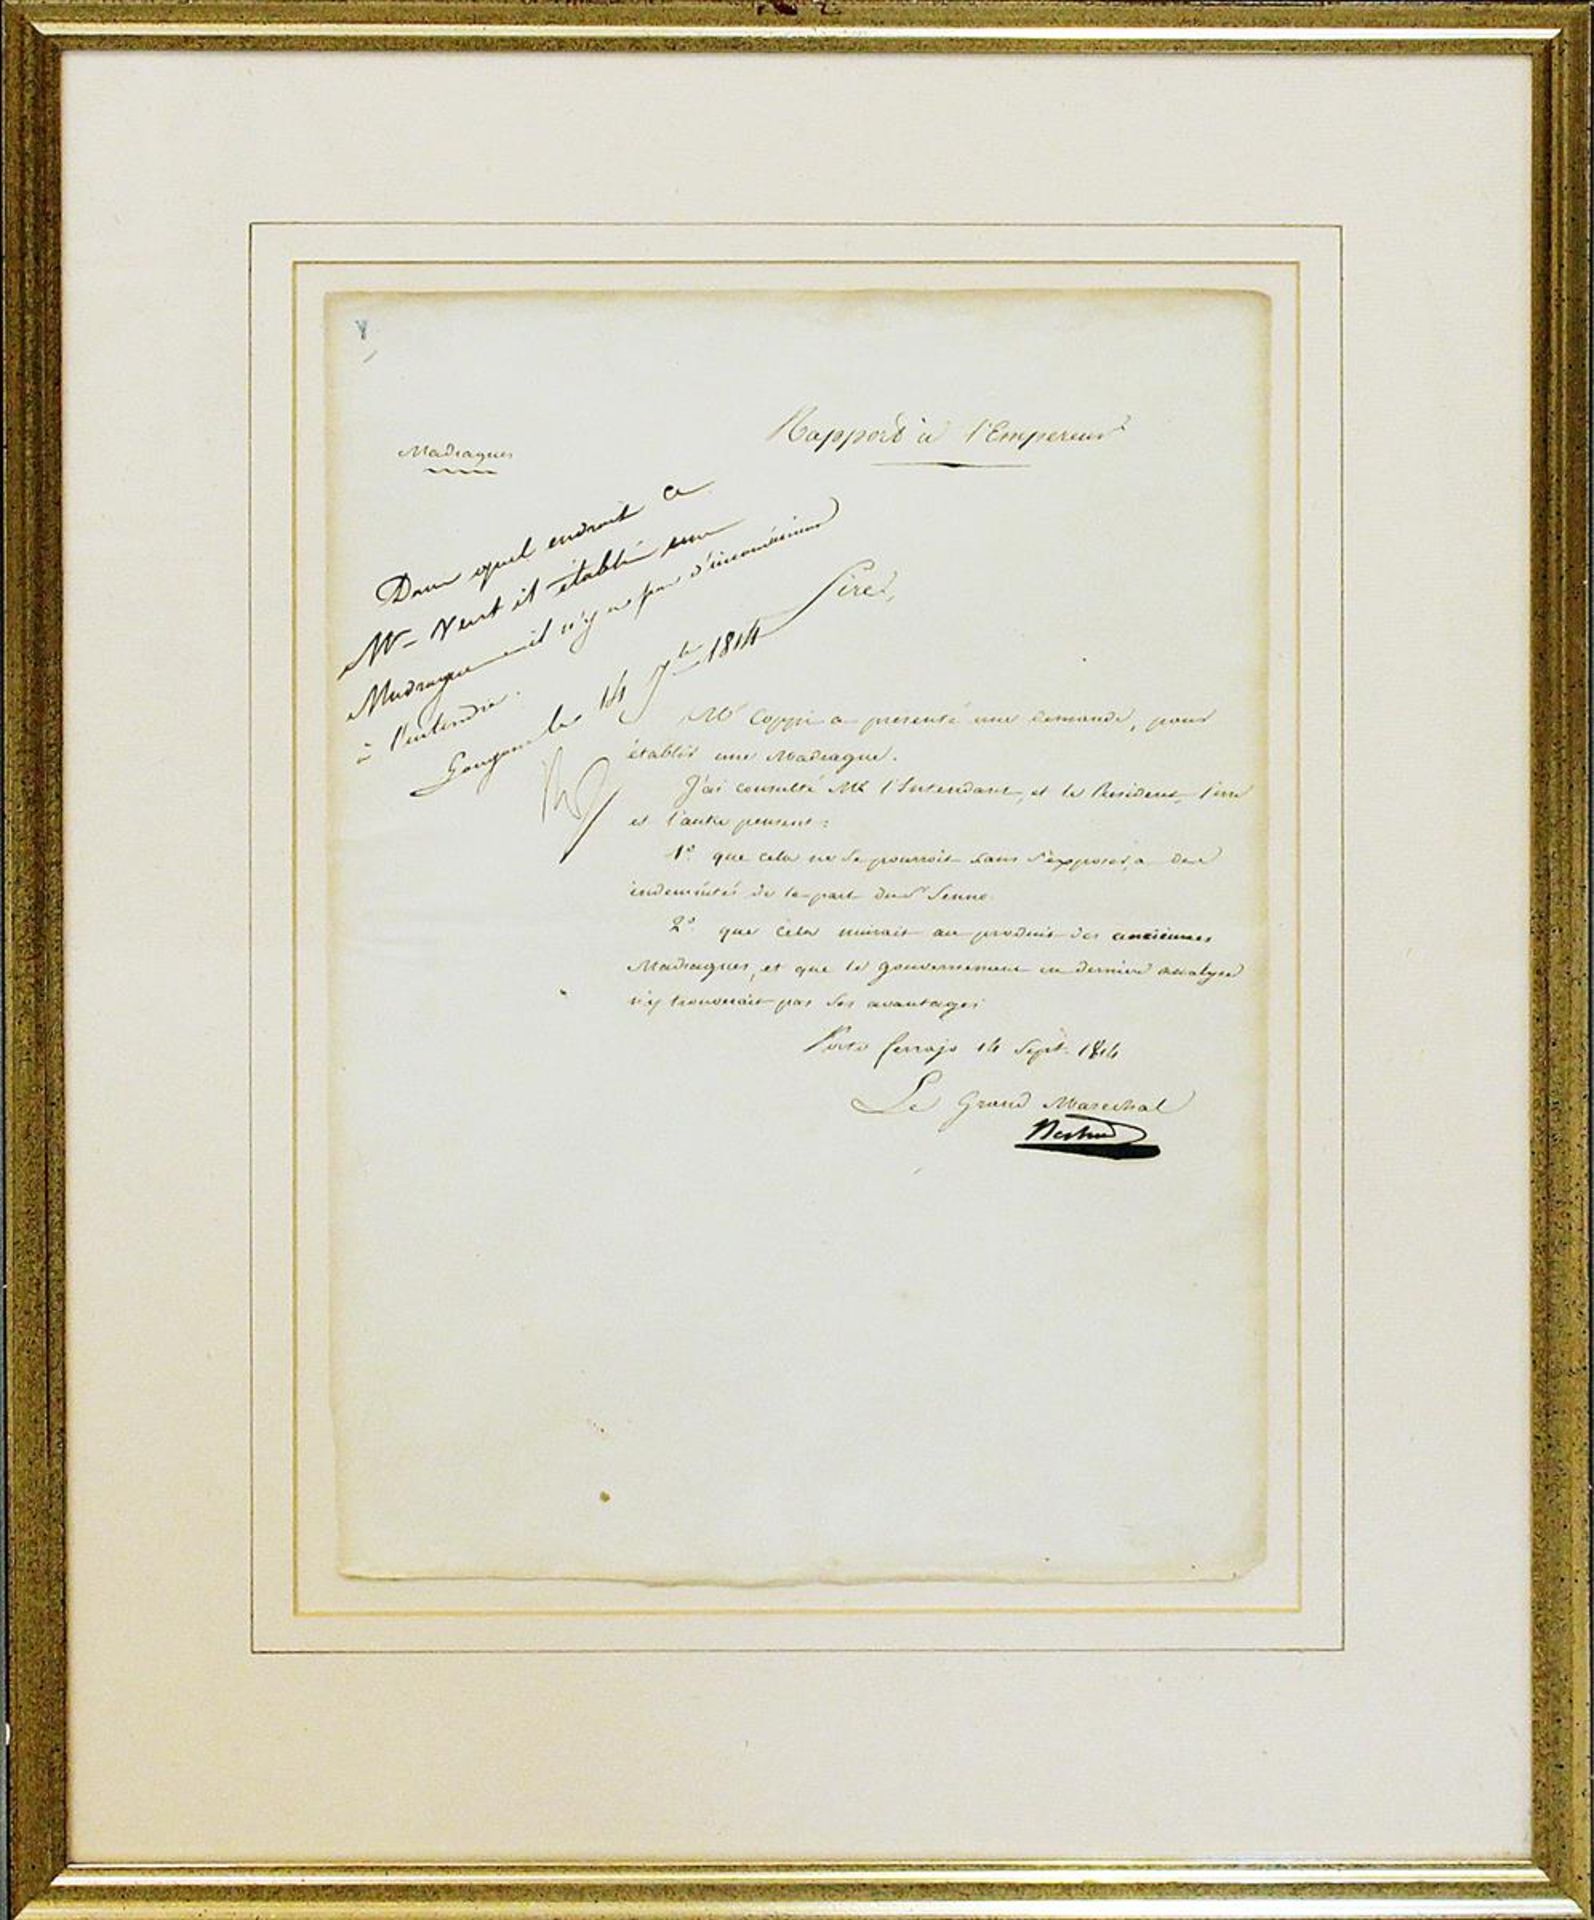 Rapport à l'Empereur
Madragues
Dans quel endroit ce
Mr veut il établir une
Madrague il n'y a pas d'inconvénient
à l'entendre.
Longone le 14 7bre 1814
Sire,
Mr Coppi a présenté une demande, pour
établir une Madrague.
J'ai consulté Mr l'Intendant, et le Président, l'un
et l'autre pensent :
1º que cela ne se pourroit sans s'exposer, a des
indemnités de la part du Sr Senno
2º que cela nuirait au produit des anciennes
Madragues, et que le gouvernement en dernière analyse
n'y trouverait pas ses avantages
Porto ferrajo 14 Sept. 1814
Le Grand Marechal
Bertrand